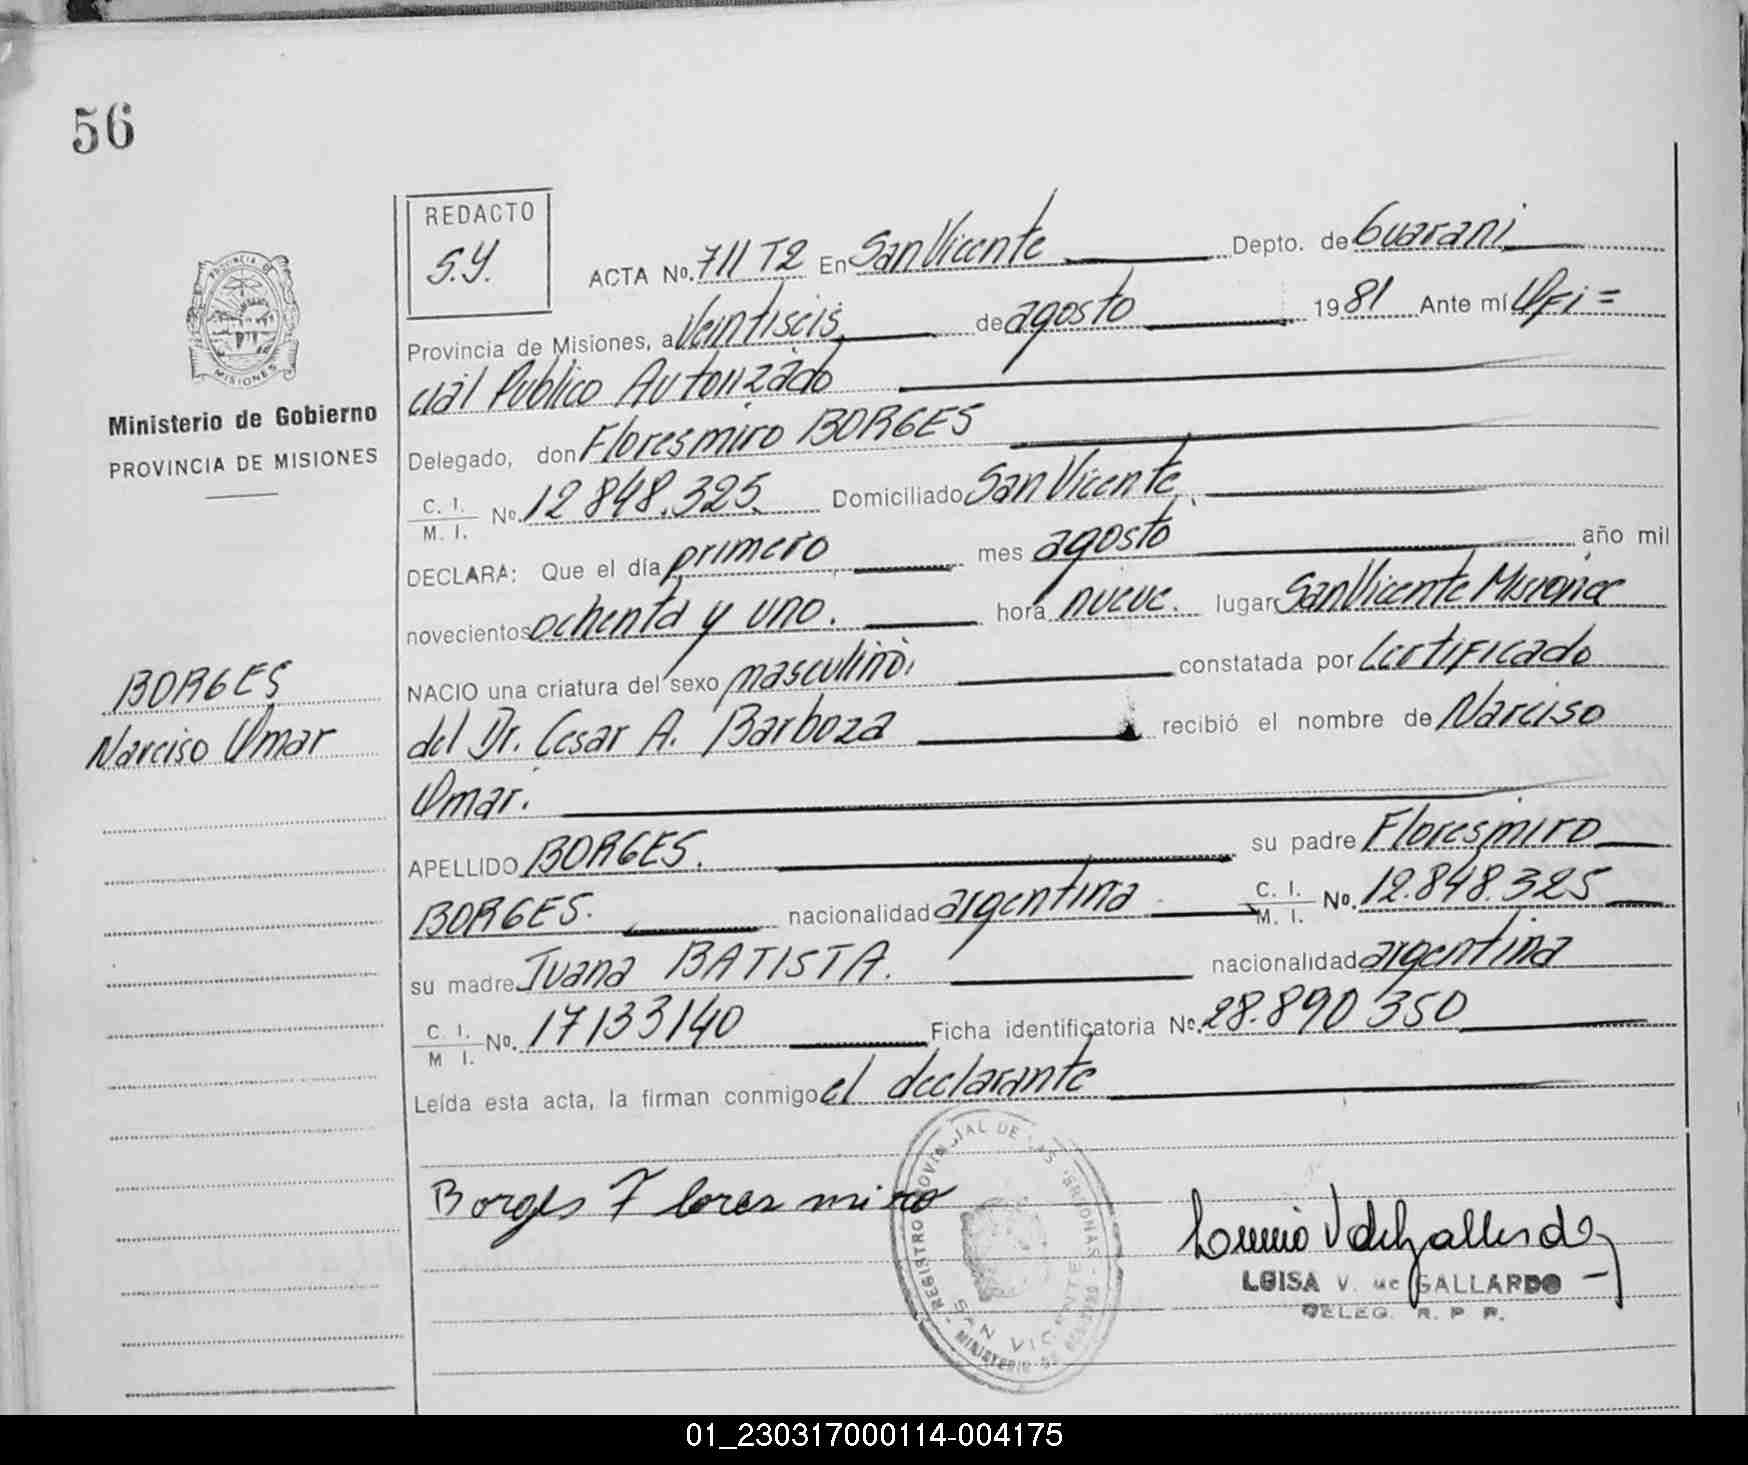 56
REDACTO
S.Y.
ACTA No. 711 T2 En San Vicente Depto. de Guarani
Provincia de Misiones, a Veintiseis de agosto 1981 Ante mí Ofi=
cial Publico Autorizado
Delegado, don Floresmiro BORGES
C. I. / M. I. No. 12848.325. Domiciliado San Vicente
DECLARA: Que el día primero mes agosto año mil
novecientos ochenta y uno. hora nueve. lugar San Vicente Misiones
NACIO una criatura del sexo masculino, constatada por Certificado
del Dr. Cesar A. Barboza recibió el nombre de Narciso
Omar.
APELLIDO BORGES. su padre Floresmiro
BORGES. nacionalidad argentina C. I. / M. I. No. 12.848.325
su madre Juana BATISTA. nacionalidad argentina
C. I. / M I. No. 17133140 Ficha identificatoria No. 28.890 350
Leída esta acta, la firman conmigo el declarante
PROVINCIA DE
MISIONES
Ministerio de Gobierno
PROVINCIA DE MISIONES
BORGES
Narciso Omar
Borges Floresmiro
REGISTRO PROVINCIAL DE LAS PERSONAS
SAN VICENTE
MINISTERIO DE GOBIERNO
LUISA V. de GALLARDO
DELEG. R. P. P.
01_230317000114-004175